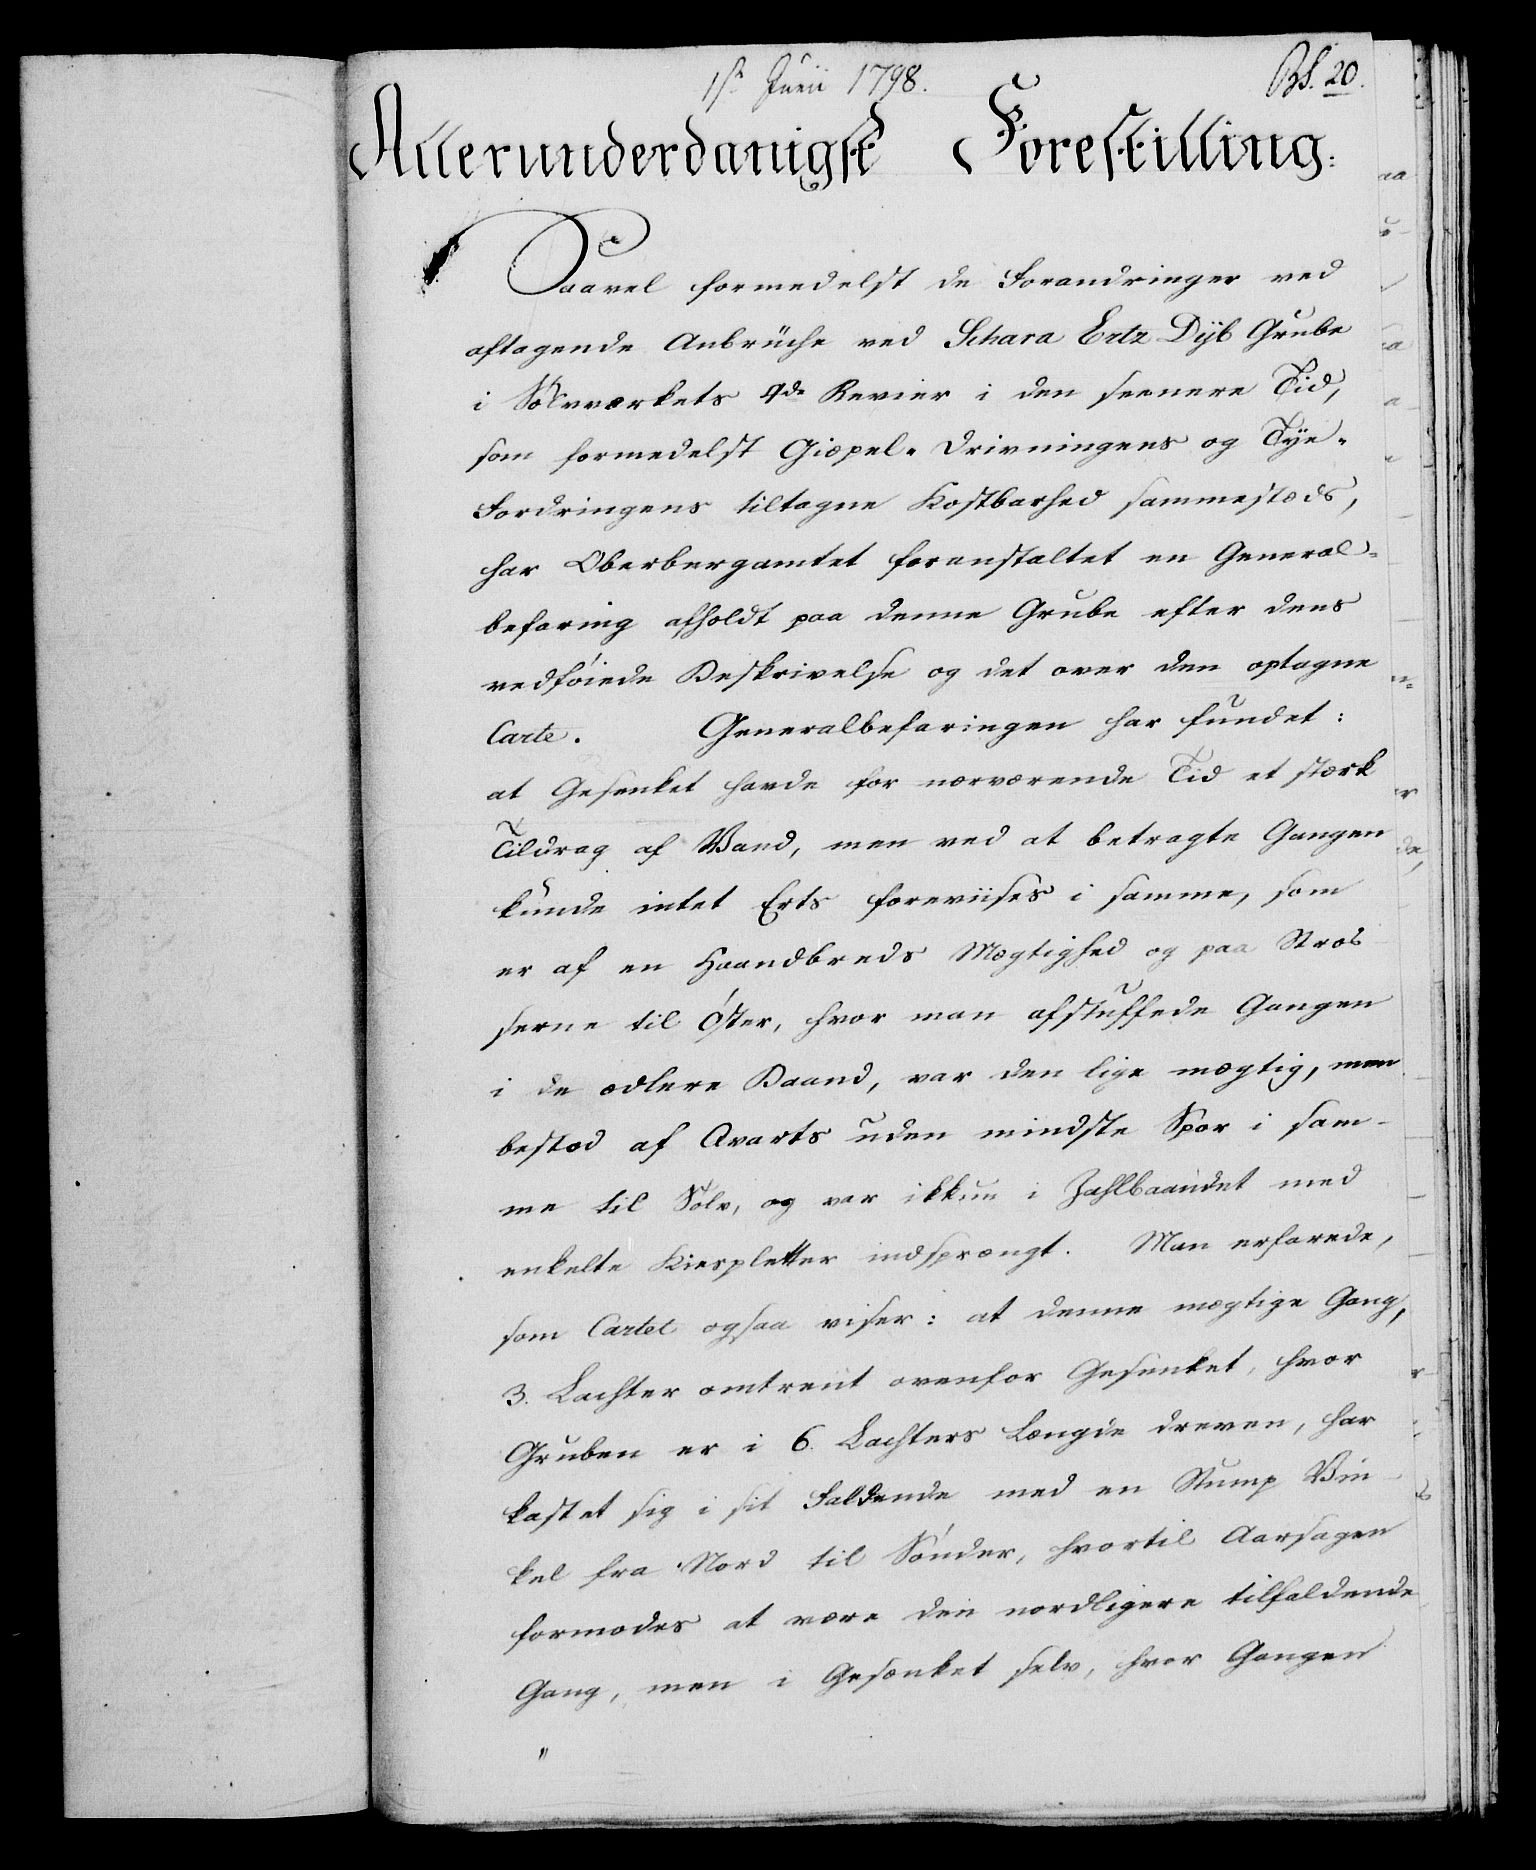 1st Junii 1798.
BS. 20.
Allerunderdanigst Forestilling:
Saavel formedelst de Forandringer ved
aftagende Anbrüche ved Schara Ertz Dÿb Grube
i Sølvværkets 4de Revier i den seenere Tid,
som formedelst Giæpel-Drivningens og Tÿe-
Fordringens tiltagne Kostbarhed sammesteds,
har Oberbergamtet foranstaltet en General-
befaring afholdt paa denne Grube efter dens
vedføiede Beskrivelse og det over den optagne
Carte. Generalbefaringen har fundet:
at Gesenket havde for nærværende Tid et stærk
Tildrag af Vand, men ved at betragte Gangen
kunde intet Erts foreviises i samme, som
er af en Haandbreds Mægtighed og paa Stros-
serne til Øster, hvor man afstuffede Gangen
i de ædlere Baand, var den lige mægtig, men
bestod af Qvarts uden mindste Spor i sam-
me til Sølv, og var ikkun i Fahlbaandet med
enkelte Kiespletter indsprængt. Man erfarede,
som Cartet ogsaa viser: at denne mægtige Gang,
3. Lachter omtrent ovenfor Gesenket, hvor
Gruben er i 6. Lachters Længde dreven, har
kastet sig i sit Faldende med en Stump Vin-
kel fra Nord til Sønder, hvortil Aarsagen
formodes at være den nordligere tilfaldende
Gang, men i Gesænket selv, hvor Gangen
"